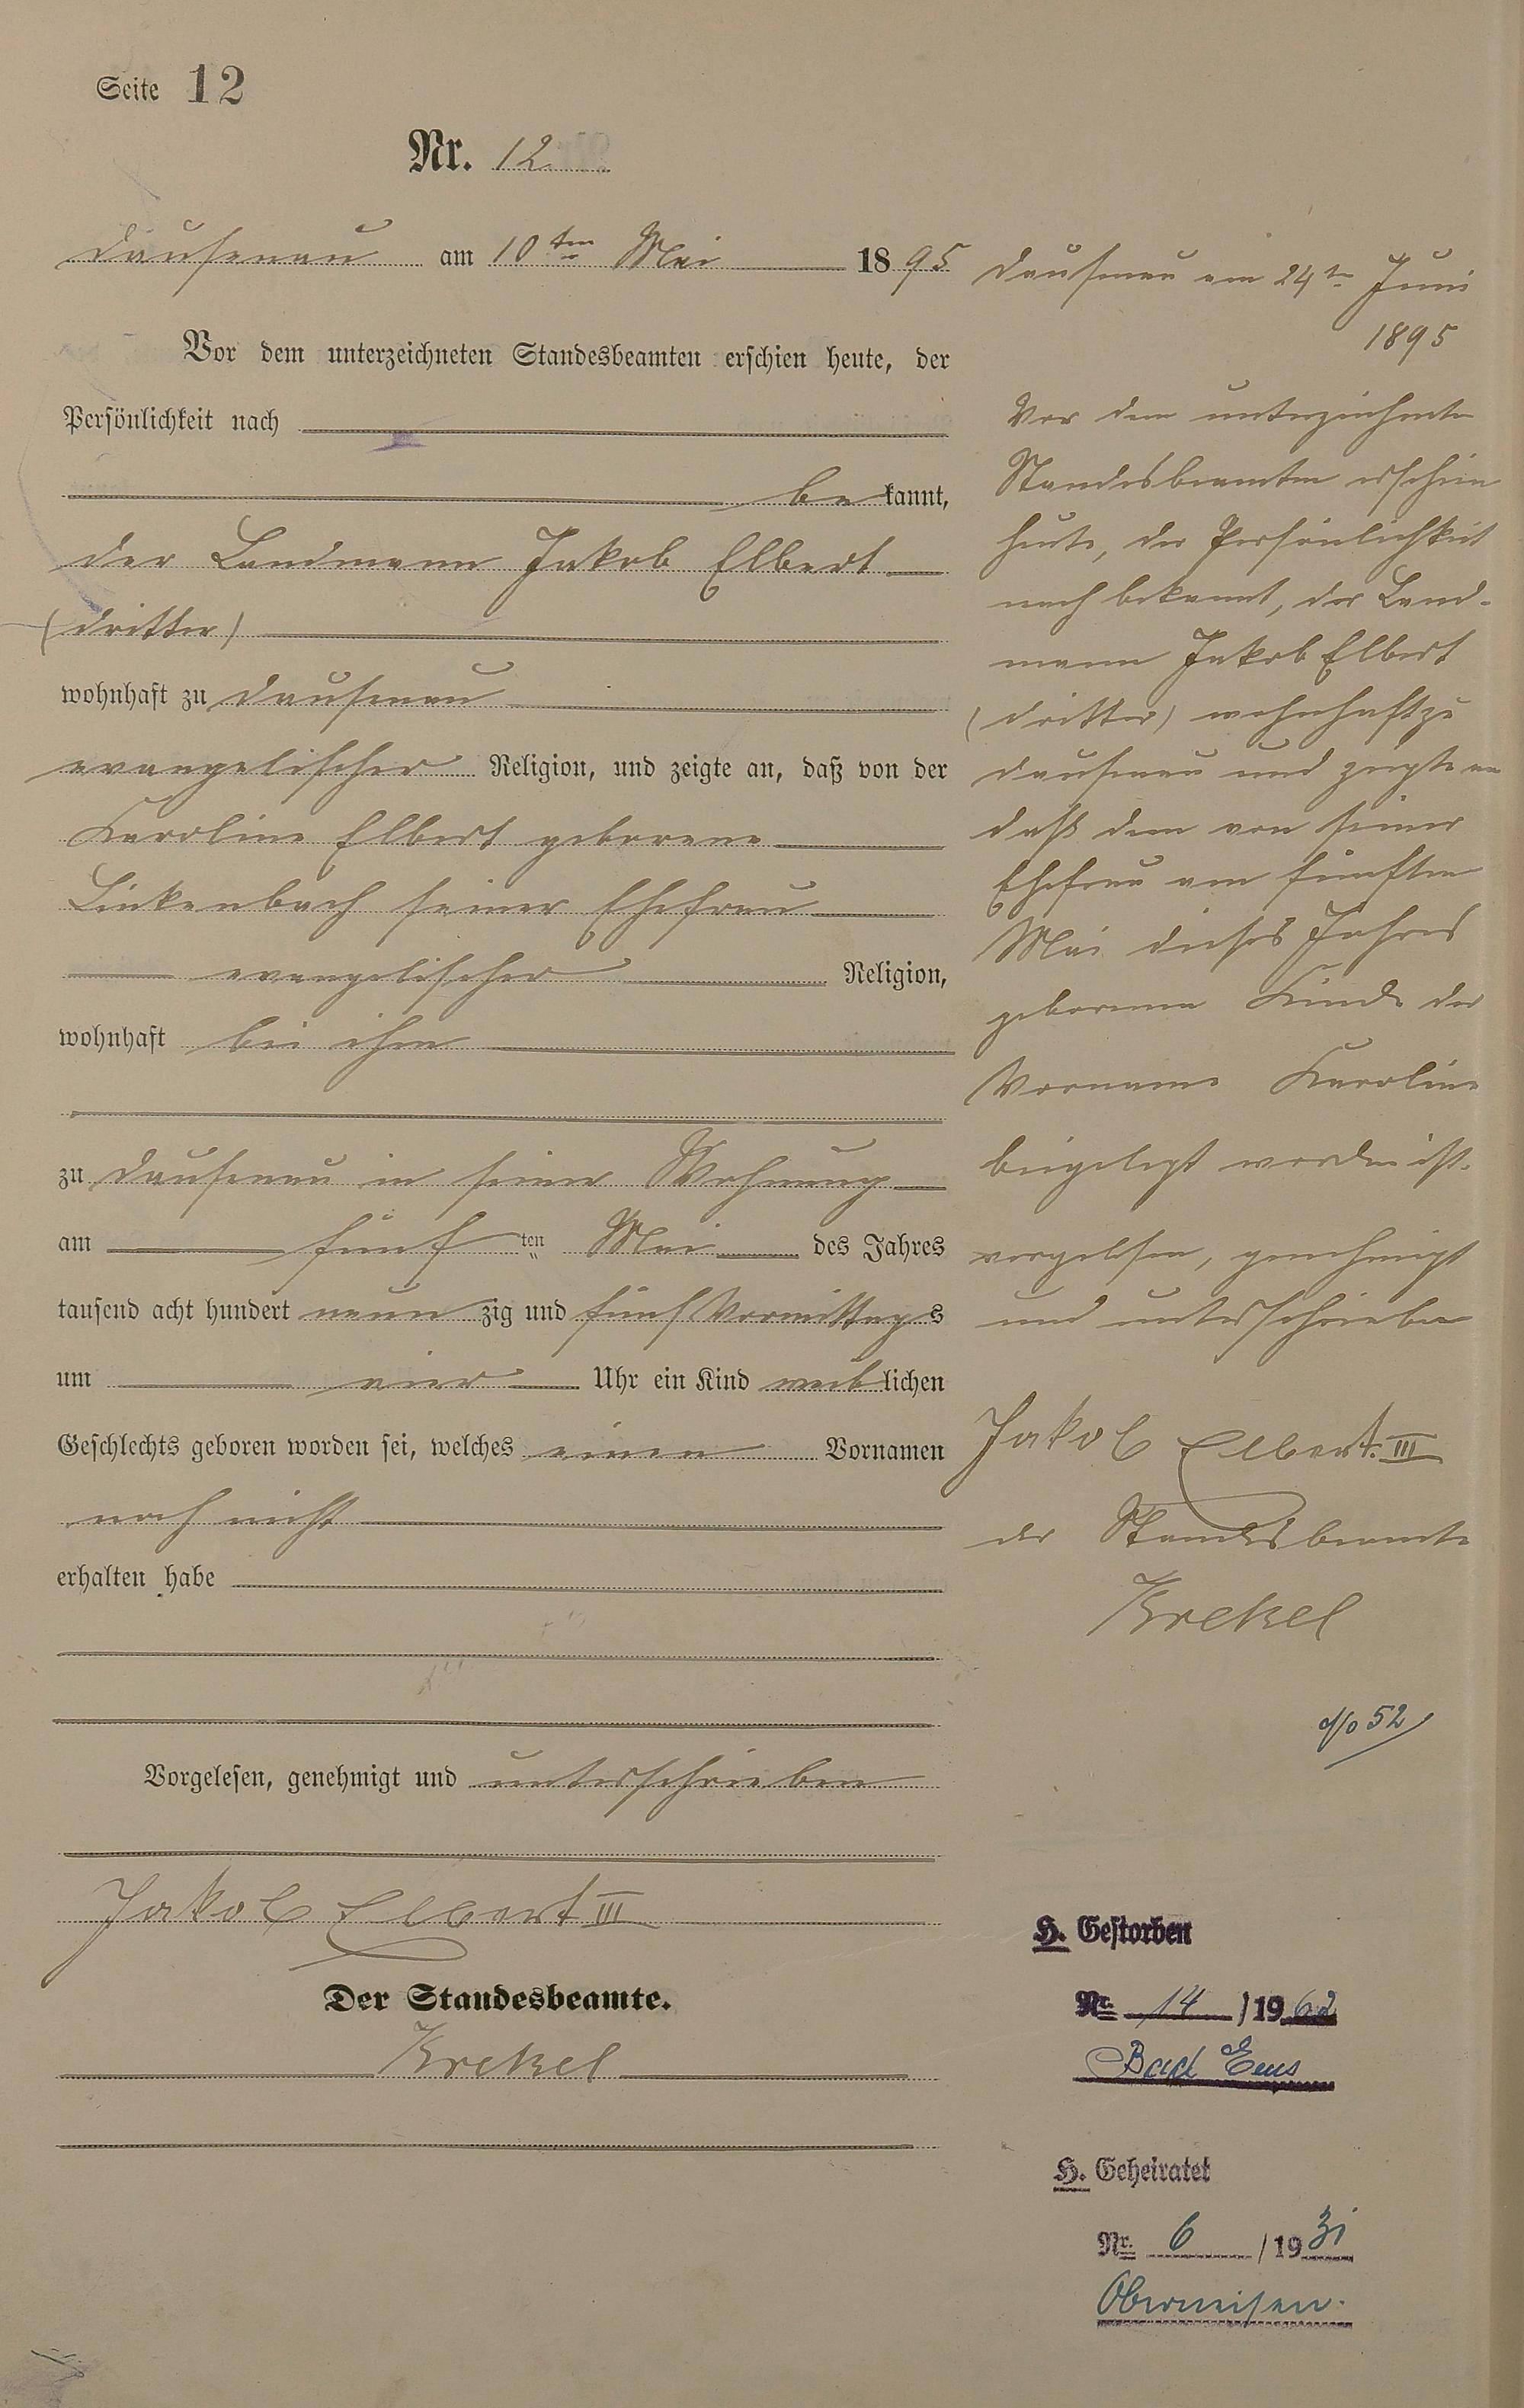 Seite 12
Nr. 12
Dausenau am 10ten Mai 1895
Vor dem unterzeichneten Standesbeamten erschien heute, der
Persönlichkeit nach
bekannt,
der Landmann Jakob Elbert
(dritter)
wohnhaft zu Dausenau
evangelischer Religion, und zeigte an, daß von der
Karoline Elbert geborene
Linkenbach seiner Ehefrau
evangelischer Religion,
wohnhaft bei ihm
zu Dausenau in seiner Wohnung
am fünften Mai des Jahres
tausend acht hundert neunzig und fünf Vormittags
um vier Uhr ein Kind weiblichen
Geschlechts geboren worden sei, welches einen Vornamen
noch nicht
erhalten habe
Vorgelesen, genehmigt und unterschrieben
Jakob Elbert III
Der Standesbeamte.
Krekel
Dausenau am 24ten Juni
1895
Vor dem unterzeichneten
Standesbeamten erschien
heute, der Persönlichkeit
nach bekannt, der Land-
mann Jakob Elbert
(dritter) wohnhaft zu
Dausenau und zeigte an
daß dem von seiner
Ehefrau am fünften
Mai dieses Jahres
geborenen Kinde der
Vorname Karoline
beigelegt worden ist.
vorgelesen, genehmigt
und unterschrieben
Jakob Elbert. III
der Standesbeamte
Krekel
52
H. Gestorben
Nr. 14 / 1962
Bad Ems
H. Geheiratet
Nr. 6 / 1931
Oberneisen.